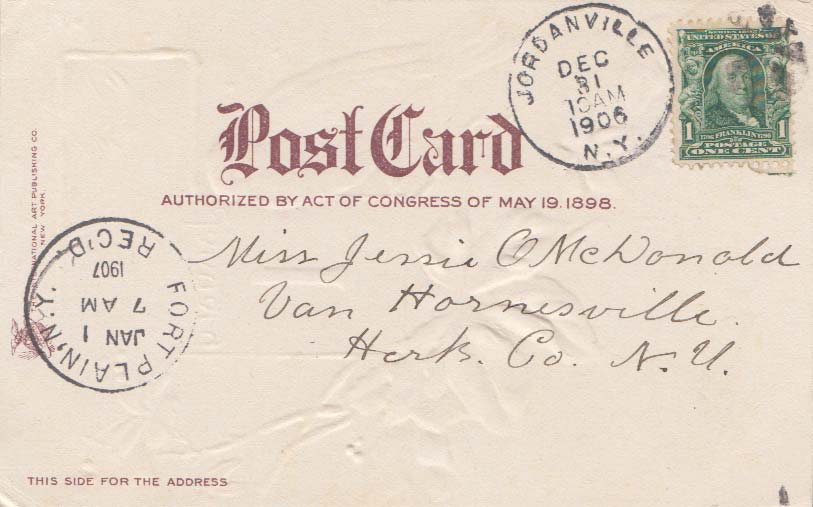 JORDANVILLE
DEC
31
10AM
1906
N.Y.
UNITED STATES OF
AMERICA
1 FRANKLIN 1
POSTAGE
ONE CENT
Post Card
AUTHORIZED BY ACT OF CONGRESS OF MAY 19. 1898.
NATIONAL ART PUBLISHING CO.
NEW YORK.
Miss Jessie C McDonald
Van Hornesville.
Herk. Co. N.Y.
FORT PLAIN, N.Y.
JAN 1
7 AM
1907
REC'D
THIS SIDE FOR THE ADDRESS